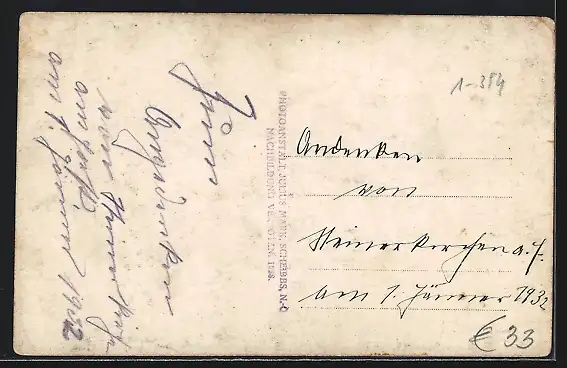 1-354
Zum
Angedenken
von
am 1. Jänner 1932
PHOTOANSTALT JULIUS MARK, SCHEIBBS, N.-Ö.
NACHBILDUNG
Andenken
von
Steinerkirchen a. f.
am 1. Jänner 1932
€ 33